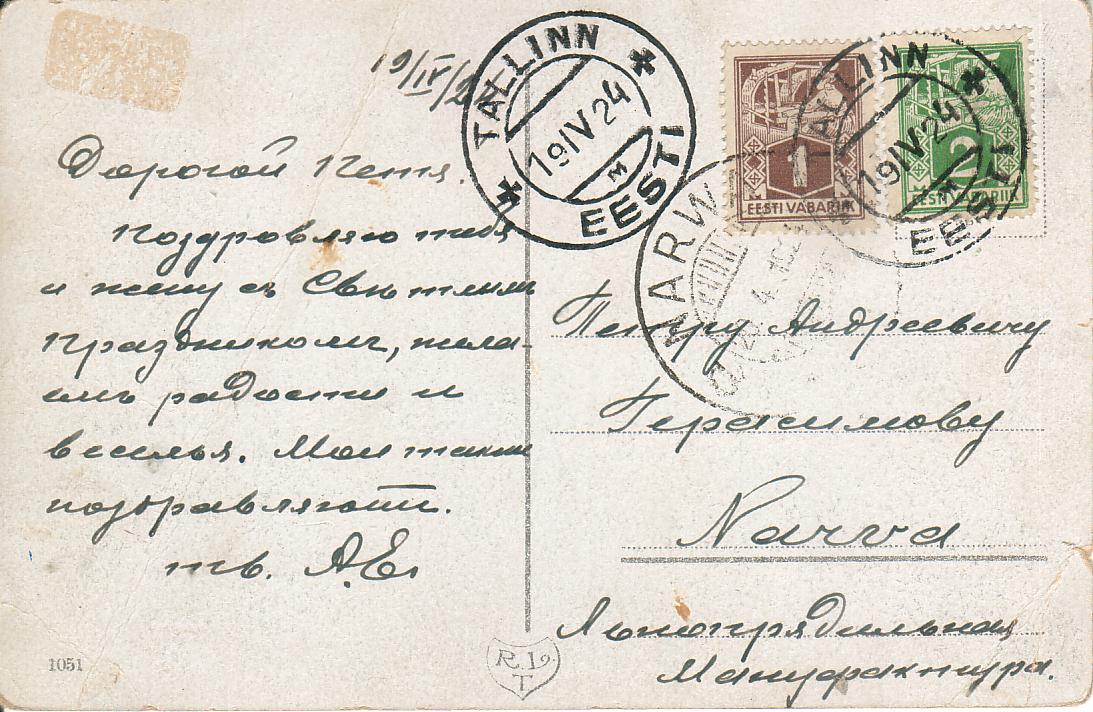 19/IV/2
TALLINN
19 IV 24
M
EESTI
1
EESTI VABARIIK
TALLINN
19 IV 24
M
EESTI
2
EESTI VABARIIK
NARWA
Дорогой Петя.
Поздровляю тебя
и жену съ Свѣтлымъ
праздникомъ, жела-
емъ радости и
веселья. Мои также
поздравляютъ.
тв. А.Е.
Петру Андреевичу
Герасимову
Narva
Льнопрядильная
Мануфактура.
1051
R. L&.
T.